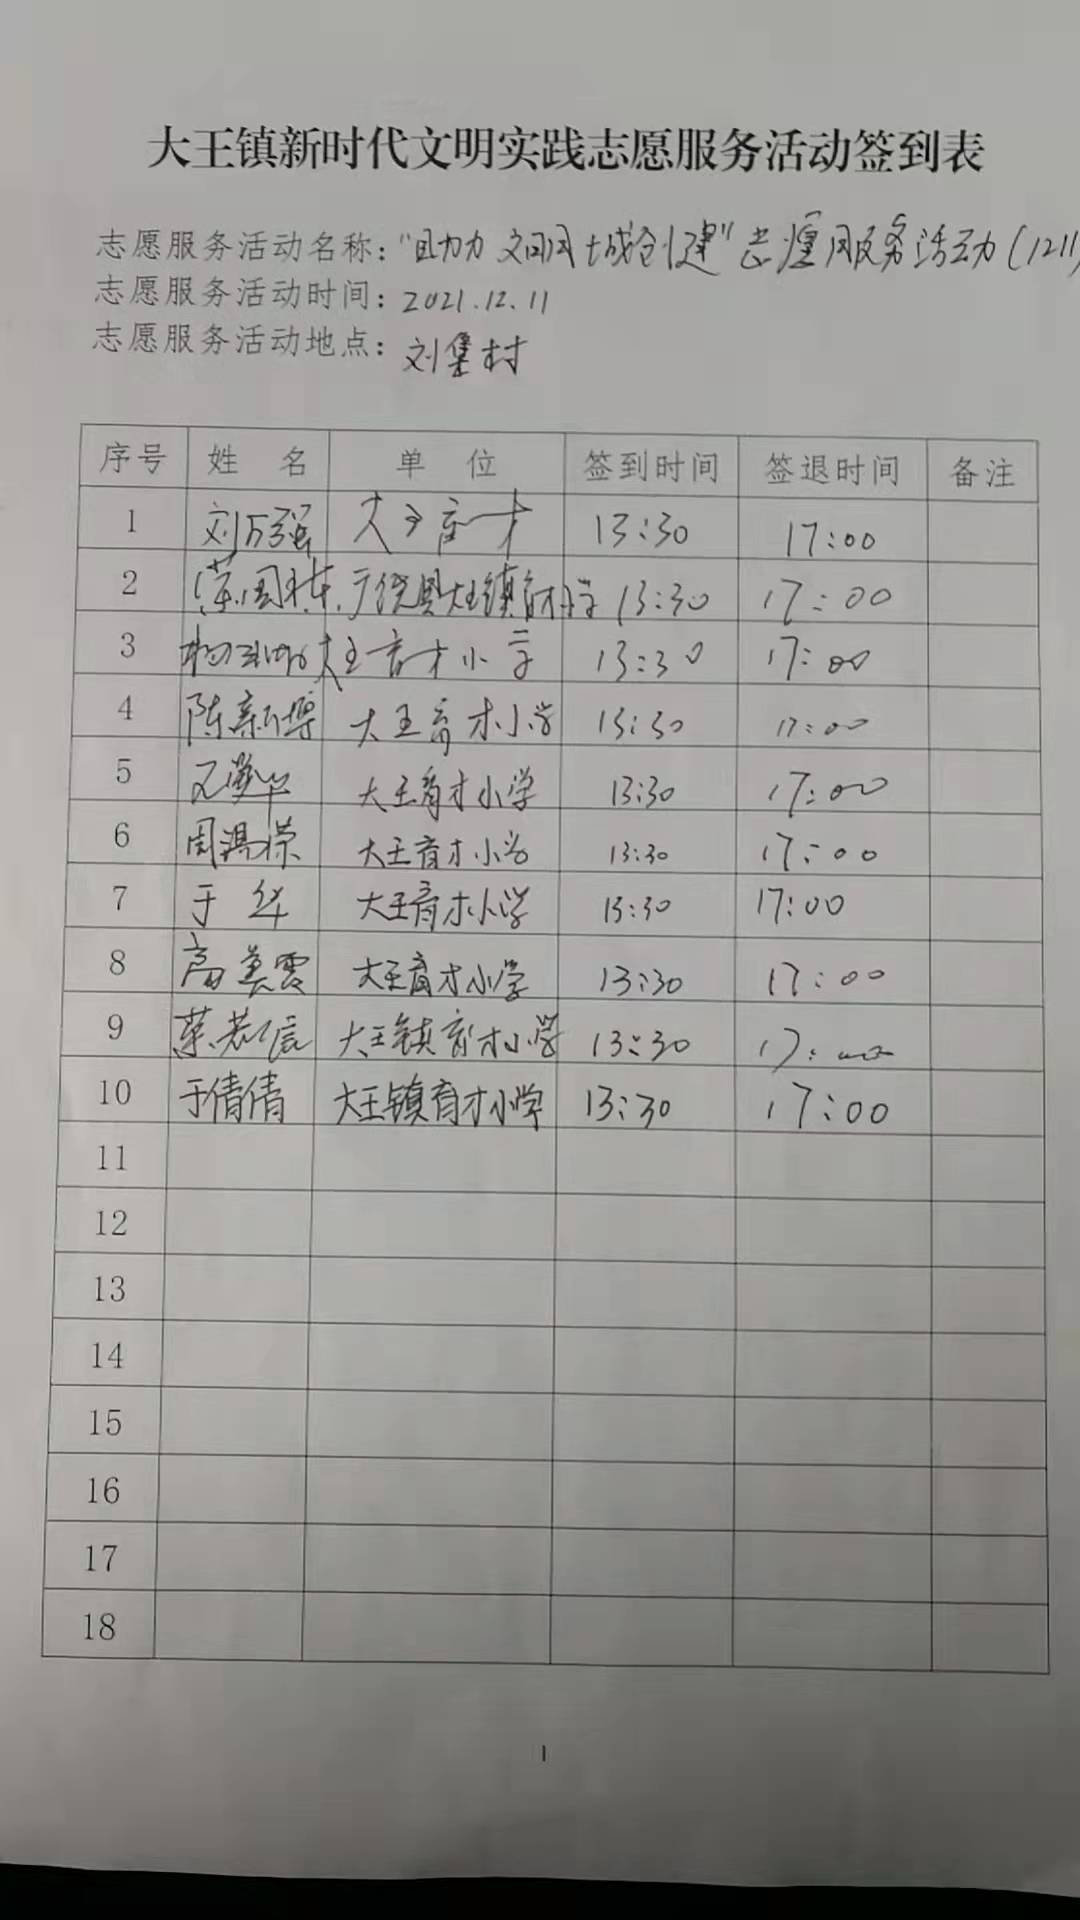 大王镇新时代文明实践志愿服务活动签到表
志愿服务活动名称："助力文明城创建"志愿服务活动(1211
志愿服务活动时间：2021.12.11
志愿服务活动地点：刘集村
序号 姓名 单位 签到时间 签退时间 备注
1 刘万强 大王育才 13:30 17:00
2 广饶县大王镇育才小学 13:30 17:00
3 大王育才小学 13:30 17:00
4 陈新博 大王育才小学 13:30 17:00
5 大王育才小学 13:30 17:00
6 周鸿荣 大王育才小学 13:30 17:00
7 于华 大王育才小学 13:30 17:00
8 高美霞 大王育才小学 13:30 17:00
9 大王镇育才小学 13:30 17:00
10 于倩倩 大王镇育才小学 13:30 17:00
11
12
13
14
15
16
17
18
1